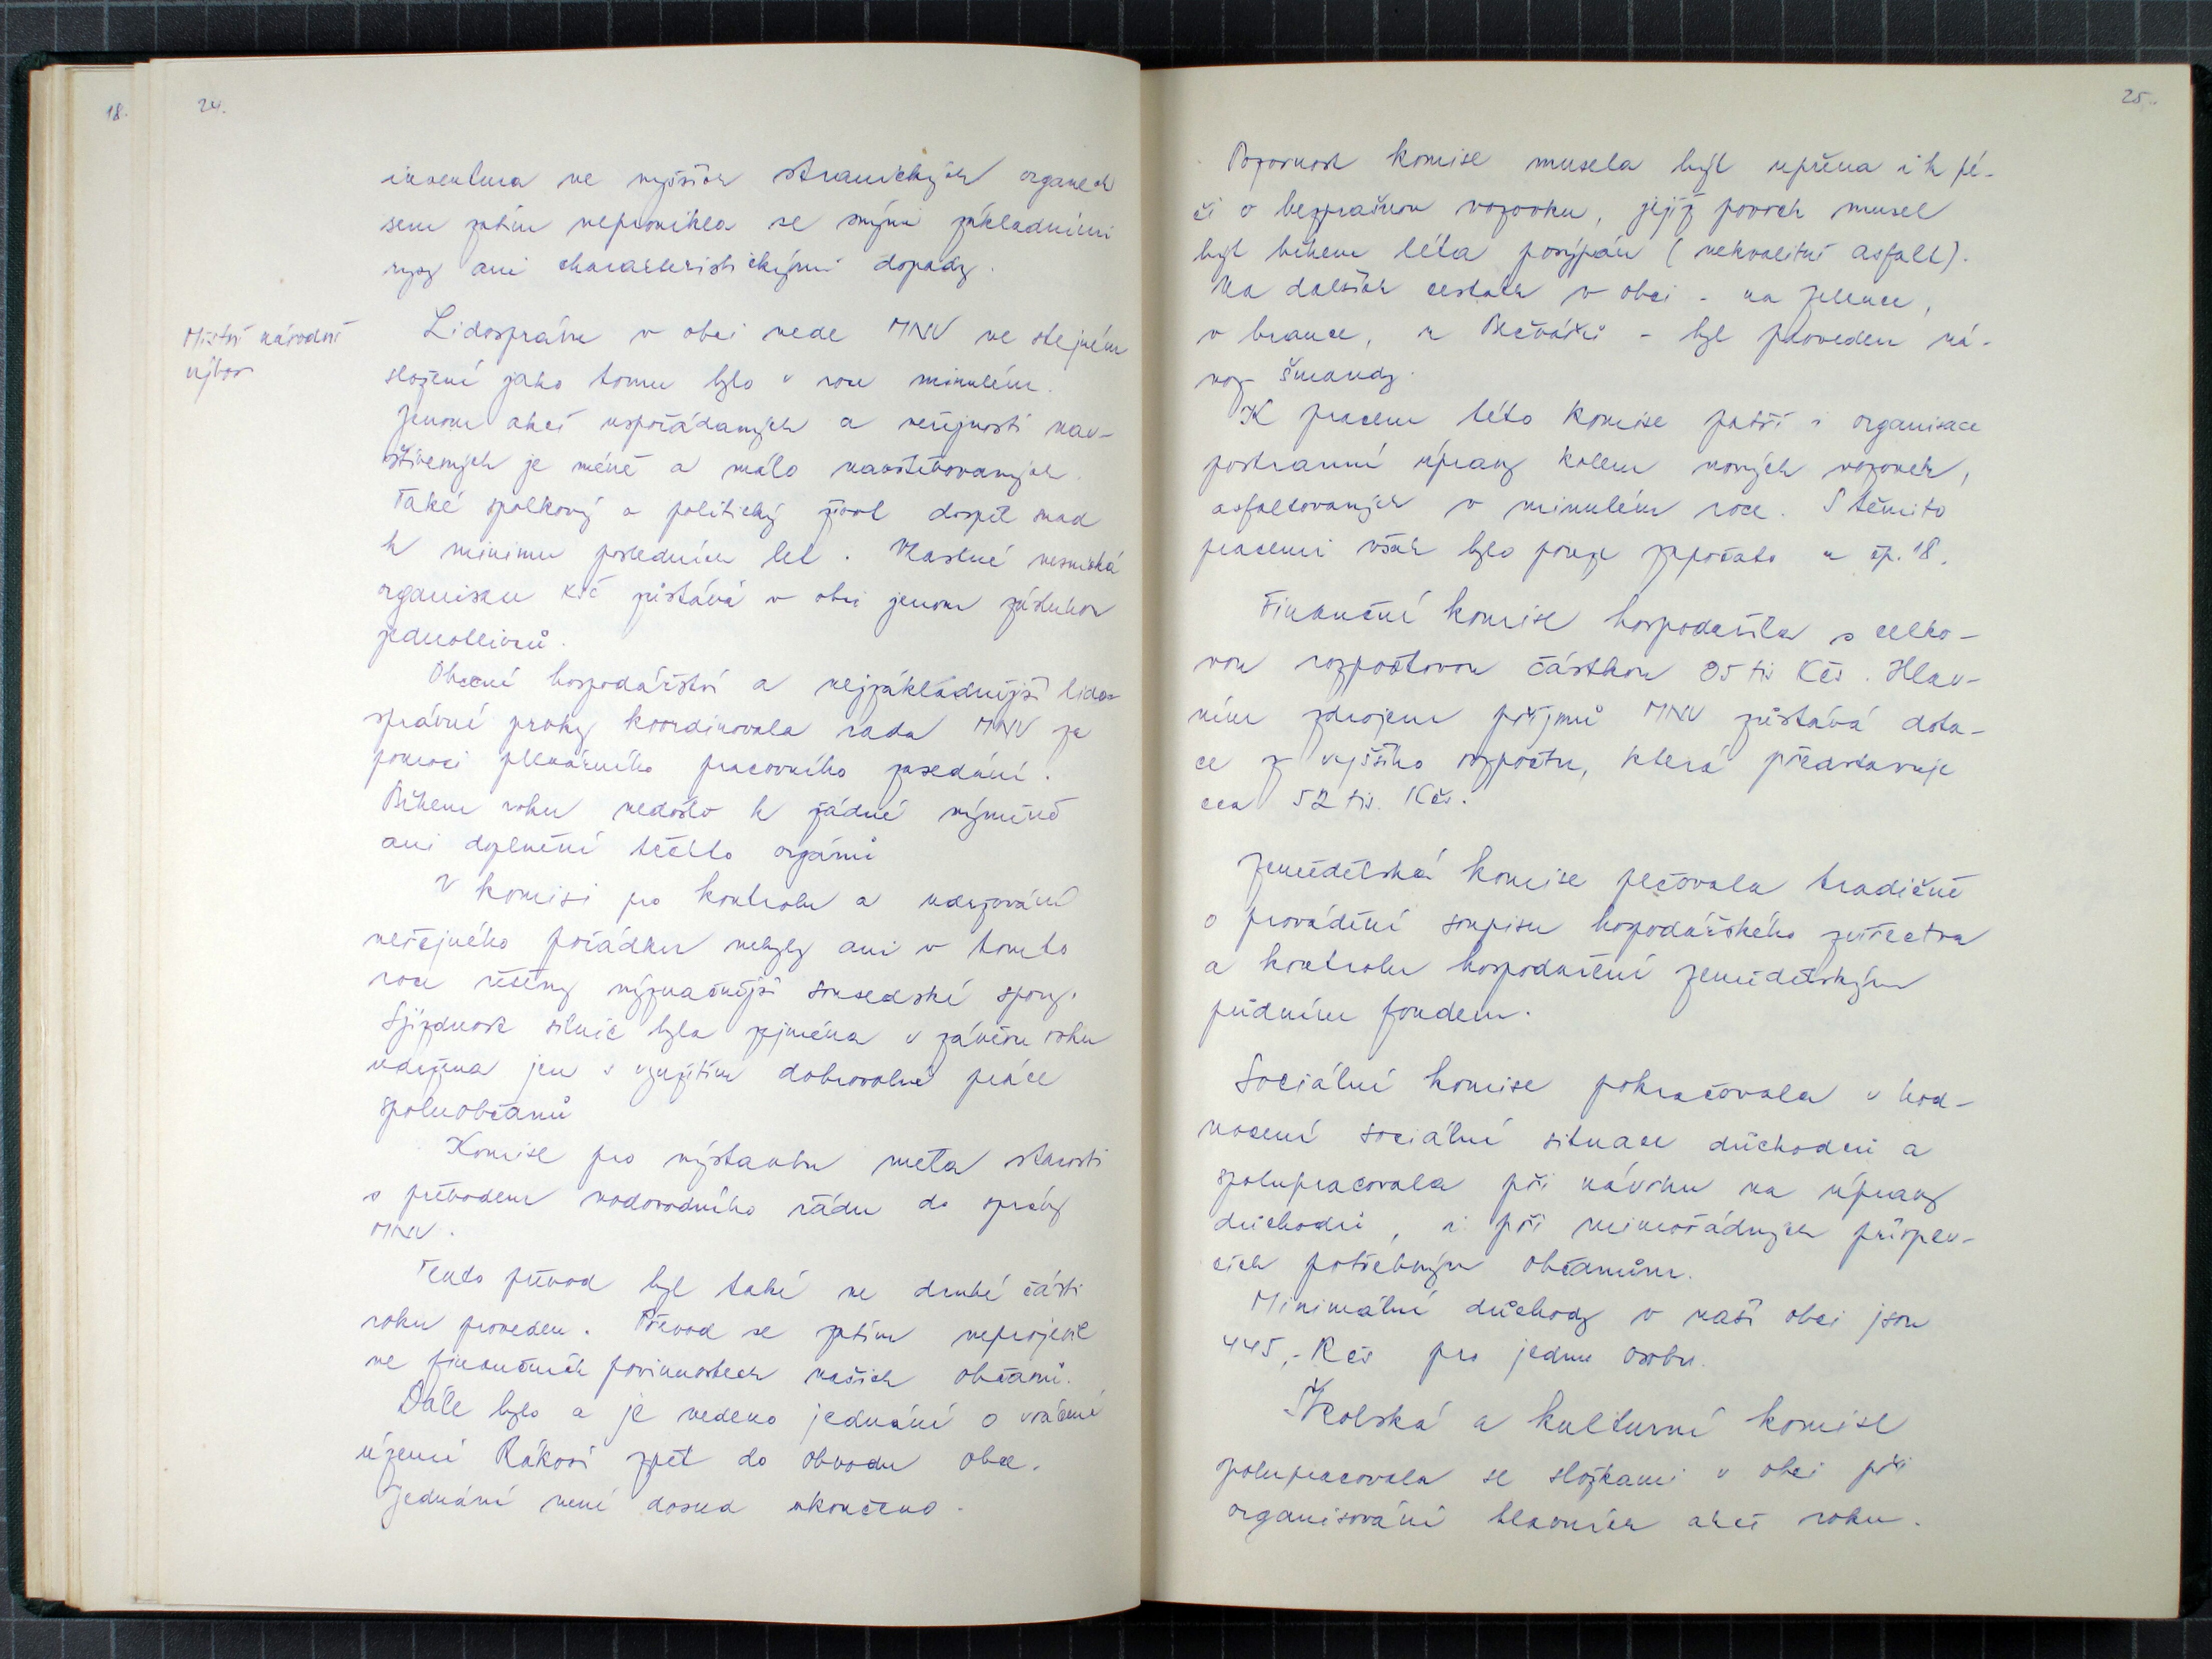 18.
24.
inventura ve vyšších stranických orgánech
sem zatím nepronikla se svými základními
rysy ani charakteristickými dopady.
Místní národní
výbor
Lidosprávu v obci vede MNV ve stejném
složení jako tomu bylo v roce minulém.
Jenom akcí uspořádaných a veřejností nav-
štívených je méně a málo navštěvovaných.
Také spolkový a politický život dospěl snad
k minimu posledních let. Vlastně vesnická
organisace KSČ zůstává v obci jenom zásluhou
jednotlivců.
Obecní hospodářství a nejzákladnější lido-
správní prvky koordinovala rada MNV za
pomoci plenárního pracovního zasedání.
Během roku nedošlo k žádné výměně
ani doplnění těchto orgánů
V komisi pro kontrolu a udržování
veřejného pořádku nebyly ani v tomto
roce řešeny význačnější sousedské spory.
Sjízdnost silnic byla zejména v závěru roku
udržena jen s využitím dobrovolné práce
spoluobčanů
Komise pro výstavbu měla starosti
s převodem vodovodního řádu do správy
MNV.
Tento převod byl také ve druhé části
roku proveden. Převod se zatím neprojevil
ve finančních povinnostech našich občanů.
Dále bylo a je vedeno jednání o vrácení
území Rákosí zpět do obvodu obce.
Jednání není dosud ukončeno.
25.
Pozornost komise musela být upřena i k pé-
či o bezprašnou vozovku, jejíž povrch musel
být během léta posýpán (nekvalitní asfalt).
Na dalších cestách v obci - na Zelence,
v brance, u Bečvářů - byl proveden ná-
voz šmandy.
K pracem této komise patří i organisace
postranní úpravy kolem nových vozovek,
asfaltovaných v minulém roce. S těmito
pracemi však bylo pouze započato u čp. 18.
Finanční komise hospodařila s celko-
vou rozpočtovou částkou 95 tis Kčs. Hlav-
ním zdrojem příjmů MNV zůstává dota-
ce z vyššího rozpočtu, která představuje
cca 52 tis. Kčs.
Zemědělská komise pečovala tradičně
o provádění soupisu hospodářského zvířectva
a kontrolu hospodaření zemědělským
půdním fondem.
Sociální komise pokračovala v hod-
nocení sociální situace důchodců a
spolupracovala při návrhu na úpravy
důchodů, i při mimořádných příspěv-
cích potřebným občanům.
Minimální důchody v naší obci jsou
445,- Kčs pro jednu osobu.
Školská a kulturní komise
spolupracovala se složkami v obci při
organisování hlavních akcí roku.